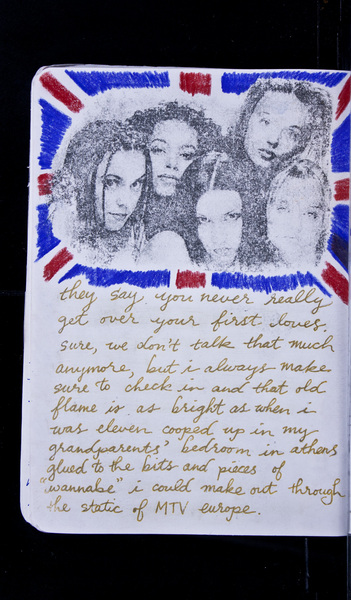 they say you never really
get over your first loves.
sure, we don't talk that much
anymore, but i always make
sure to check in and that old
flame is as bright as when i
was eleven cooped up in my
grandparents' bedroom in athens
glued to the bits and pieces of
"wannabe" i could make out through
the static of MTV europe.